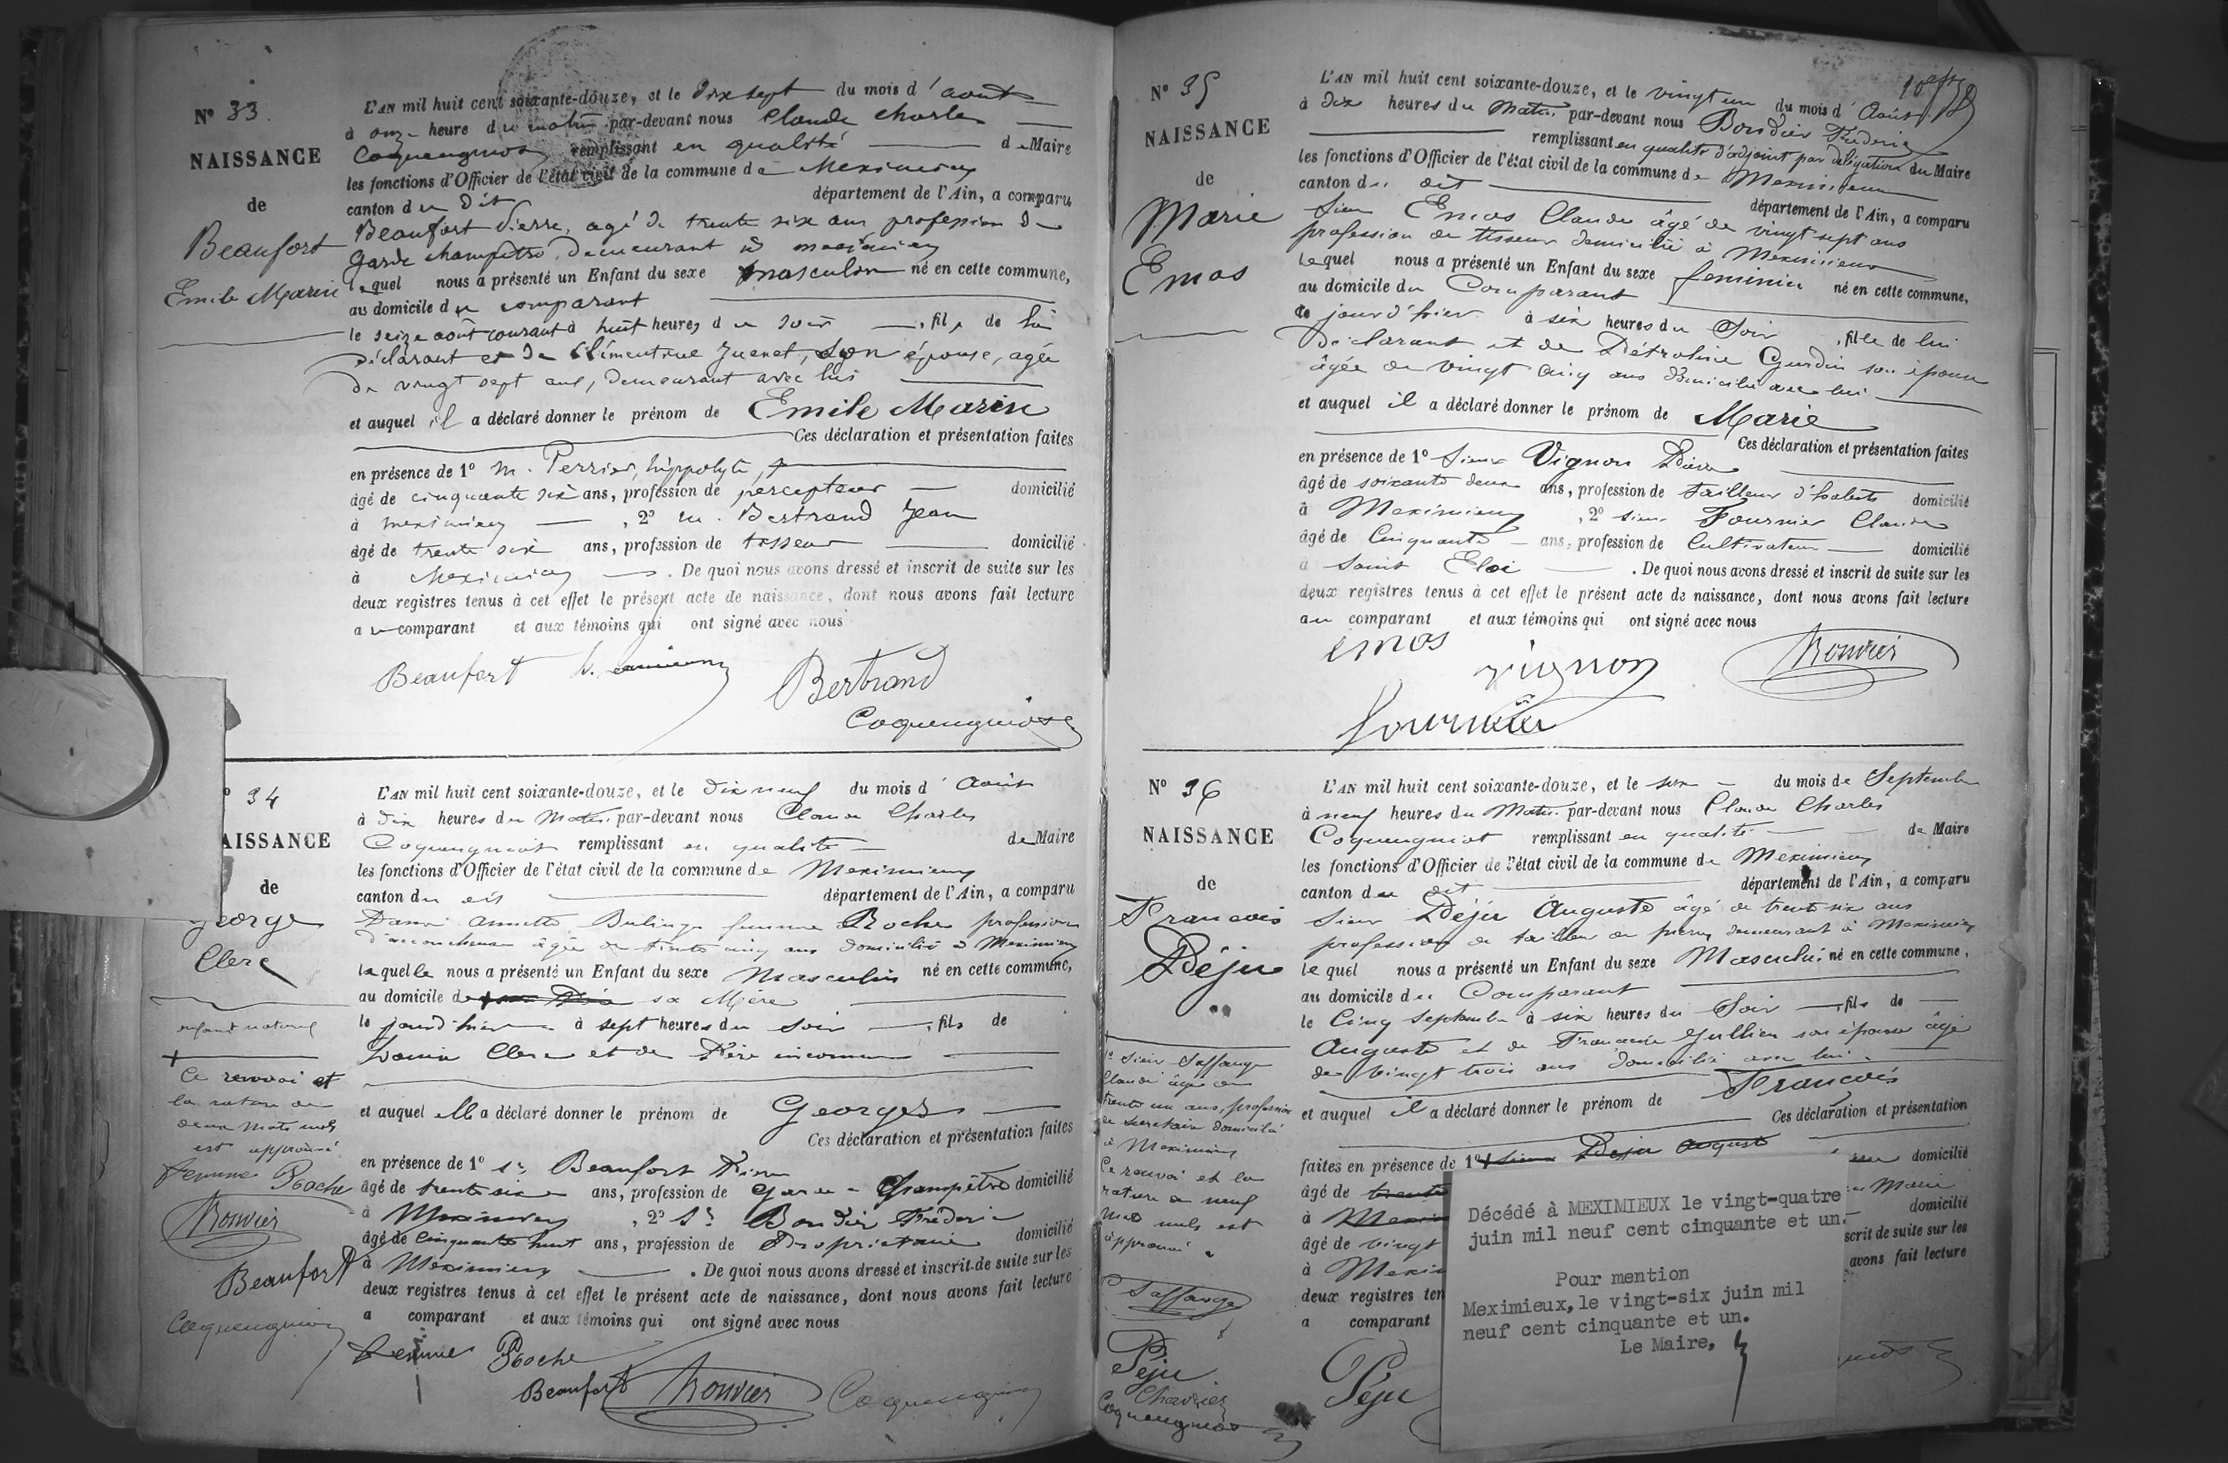 N° 33.
NAISSANCE
de
Beaufort
Emile Marin
L'AN mil huit cent soixante-douze, et le dix sept du mois d'août
à onze heure du matin par-devant nous Claude Charles
remplissant en qualité de Maire
les fonctions d'Officier de l'état civil de la commune de Meximieux
canton du dit département de l'Ain, a comparu
Beaufort Pierre, agé de trente six ans profession de
garde champêtre, demeurant à meximieux
lequel nous a présenté un Enfant du sexe masculin né en cette commune,
au domicile du comparant
le seize août courant à huit heures du soir, fils de lui
déclarant et de Clémentine Juenet, son épouse, agée
de vingt sept ans, demeurant avec lui
et auquel il a déclaré donner le prénom de Emile Marin
Ces déclaration et présentation faites
en présence de 1° m. Perrier, hippolyte,
âgé de cinquante six ans, profession de percepteur domicilié
à meximieux, 2° m. Bertrand Jean
âgé de trente six ans, profession de tisseur domicilié
à Meximieux. De quoi nous avons dressé et inscrit de suite sur les
deux registres tenus à cet effet le présent acte de naissance, dont nous avons fait lecture
au comparant et aux témoins qui ont signé avec nous
Beaufort
Bertrand
34
AISSANCE
de
George
Clerc
enfant naturel
Ce renvoi et
la rature de
deux mots nuls
est approuvé
femme Roche
Bouvier
Beaufort
L'AN mil huit cent soixante-douze, et le dix neuf du mois d'Août
à dix heures du Matin par-devant nous Claude Charles
remplissant en qualité de Maire
les fonctions d'Officier de l'état civil de la commune de Meximieux
canton du dit département de l'Ain, a comparu
Dame Annette femme Roche profession
d'accoucheuse âgée de trente cinq ans domiciliée à Meximieux
laquelle nous a présenté un Enfant du sexe Masculin né en cette commune,
au domicile de sa Mère
le jour d'hier à sept heures du soir, fils de
Clerc et de Père inconnu
et auquel elle a déclaré donner le prénom de Georges
Ces déclaration et présentation faites
en présence de 1° Sr Beaufort Pierre
âgé de trente six ans, profession de Garde-Champêtre domicilié
à Meximieux, 2° Sr Frédéric
âgé de cinquante huit ans, profession de Propriétaire domicilié
à Meximieux. De quoi nous avons dressé et inscrit de suite sur les
deux registres tenus à cet effet le présent acte de naissance, dont nous avons fait lecture
a comparant et aux témoins qui ont signé avec nous
femme Roche
Beaufort Bouvier
N° 35
NAISSANCE
de
Marie
Emos
L'AN mil huit cent soixante-douze, et le vingt un du mois d'Août
à dix heures du Matin par-devant nous Frédéric
remplissant en qualité d'adjoint par délégation du Maire
les fonctions d'Officier de l'état civil de la commune de Meximieux
canton du dit département de l'Ain, a comparu
Sieur Emos Claude âgé de vingt sept ans
profession de tisseur domicilié à Meximieux
lequel nous a présenté un Enfant du sexe féminin né en cette commune,
au domicile du Comparant
le jour d'hier à six heures du Soir, fille de lui
Déclarant et de Pétroline son épouse
âgée de vingt cinq ans domiciliée avec lui
et auquel il a déclaré donner le prénom de Marie
Ces déclaration et présentation faites
en présence de 1° Sieur Vignon Pierre
âgé de soixante deux ans, profession de tailleur d'habits domicilié
à Meximieux, 2° sieur Fournier Claude
âgé de Cinquante ans, profession de Cultivateur domicilié
à Saint Eloi. De quoi nous avons dressé et inscrit de suite sur les
deux registres tenus à cet effet le présent acte de naissance, dont nous avons fait lecture
au comparant et aux témoins qui ont signé avec nous
emos
vignon
Bouvier
fournier
N° 36
NAISSANCE
de
Francois
Péju
1° Sieur Saffange
Claude âgé de
trente un ans, profession
de secrétaire domicilié
à Meximieux
Ce renvoi et la
rature de neuf
mots nuls est
approuvé
Saffange
Péju
Chavrier
L'AN mil huit cent soixante-douze, et le six du mois de Septembre
à neuf heures du Matin par-devant nous Claude Charles
remplissant en qualité de Maire
les fonctions d'Officier de l'état civil de la commune de Meximieux
canton du dit département de l'Ain, a comparu
Sieur Péju Auguste âgé de trente six ans
profession de tailleur de pierre demeurant à Meximieux
lequel nous a présenté un Enfant du sexe Masculin né en cette commune,
au domicile du Comparant
le Cinq Septembre à six heures du Soir, fils de
Auguste et de Françoise Jullien son épouse âgée
de vingt trois ans domiciliée avec lui
et auquel il a déclaré donner le prénom de Francois
Ces déclaration et présentation
faites en présence de 1° Sieur Péju Auguste domicilié
âgé de trente
à Mexi domicilié
âgé de vingt scrit de suite sur les
à Mexi avons fait lecture
deux registres ten
a comparant
Péju
Décédé à MEXIMIEUX le vingt-quatre
juin mil neuf cent cinquante et un.
Pour mention
Meximieux, le vingt-six juin mil
neuf cent cinquante et un.
Le Maire,